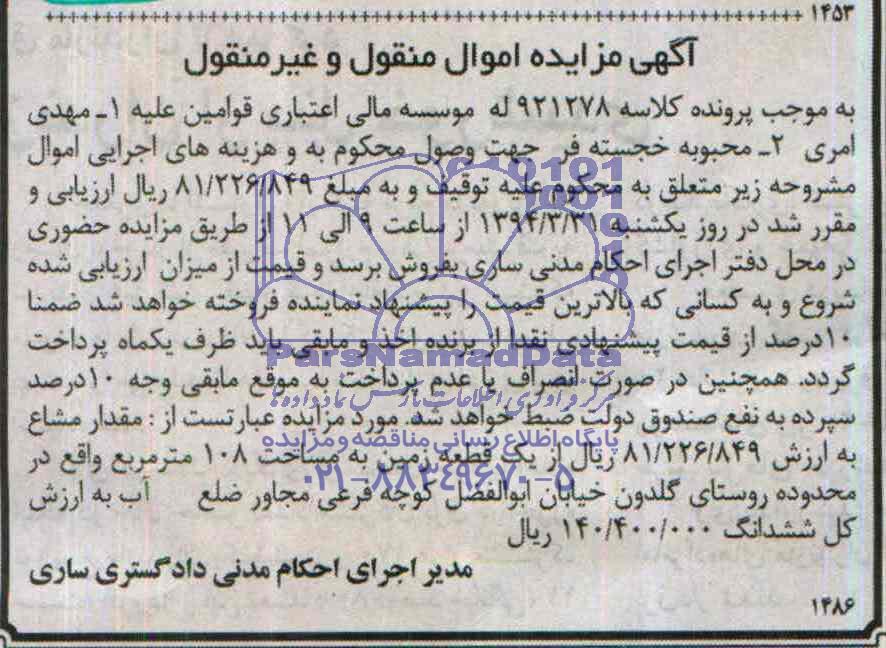 ۱۴۵۳
آگهی مزایده اموال منقول و غیرمنقول
به موجب پرونده کلاسه ۹۲۱۲۷۸ له موسسه مالی اعتباری قوامین علیه ۱ـ مهدی
امری ۲ـ محبوبه خجسته فر جهت وصول محکوم به و هزینه های اجرایی اموال
مشروحه زیر متعلق به محکوم علیه توقیف و به مبلغ ۸۱/۲۲۶/۸۴۹ ریال ارزیابی و
مقرر شد در روز یکشنبه ۱۳۹۴/۳/۳۱ از ساعت ۹ الی ۱۱ از طریق مزایده حضوری
در محل دفتر اجرای احکام مدنی ساری بفروش برسد و قیمت از میزان ارزیابی شده
شروع و به کسانی که بالاترین قیمت را پیشنهاد نماینده فروخته خواهد شد ضمنا
۱۰درصد از قیمت پیشنهادی نقدا از برنده اخذ و مابقی باید ظرف یکماه پرداخت
ParsNamadData
گردد. همچنین در صورت انصراف یا عدم پرداخت به موقع مابقی وجه ۱۰درصد
مرکز فرآوری اطلاعات پارس نماد داده ها
سپرده به نفع صندوق دولت ضبط خواهد شد. مورد مزایده عبارتست از : مقدار مشاع
پایگاه اطلاع رسانی مناقصه و مزایده
به ارزش ۸۱/۲۲۶/۸۴۹ ریال از یک قطعه زمین به مساحت ۱۰۸ مترمربع واقع در
۰۲۱-۸۸۳۴۹۶۷۰-۵
محدوده روستای گلدون خیابان ابوالفضل کوچه فرعی مجاور ضلع آب به ارزش
کل ششدانگ ۱۴۰/۴۰۰/۰۰۰ ریال
مدیر اجرای احکام مدنی دادگستری ساری
۱۴۸۶